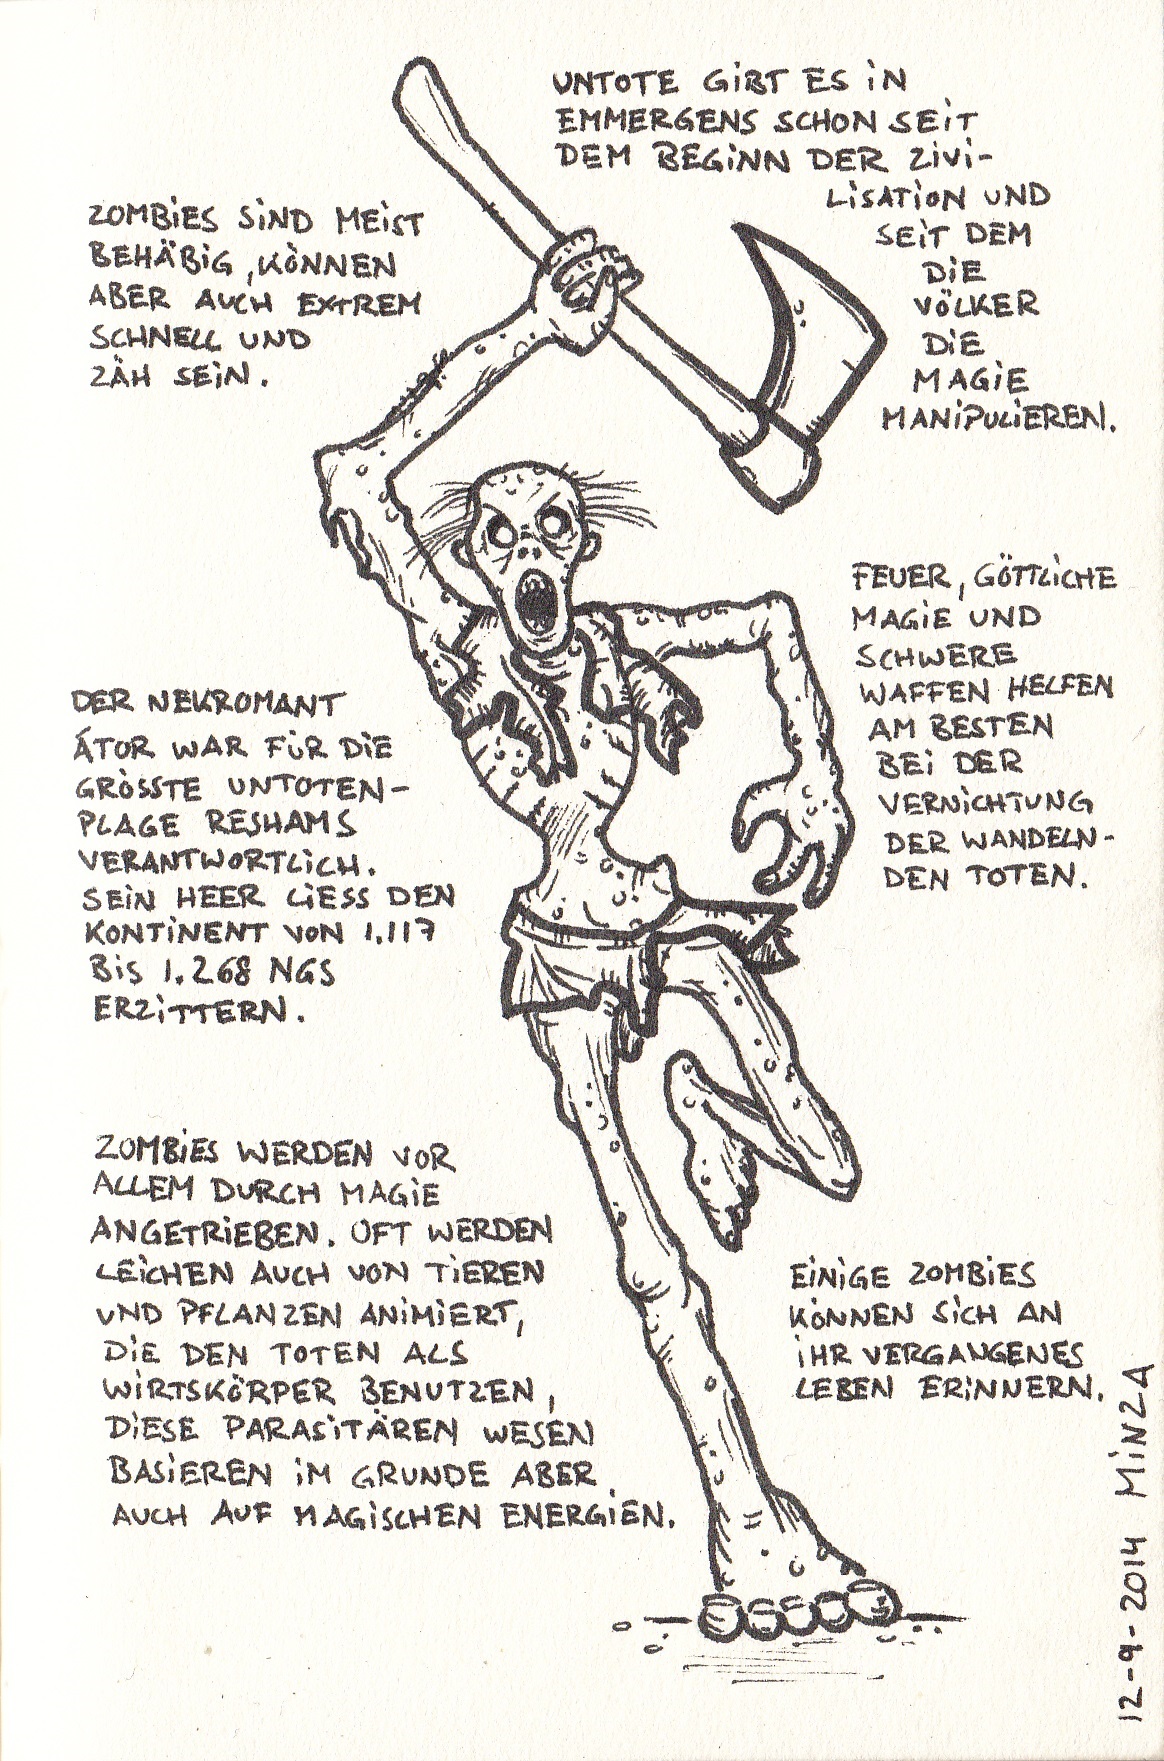 UNTOTE GIBT ES IN
EMMERGENS SCHON SEIT
DEM BEGINN DER ZIVI-
LISATION UND
SEIT DEM
DIE
VÖLKER
DIE
MAGIE
MANIPULIEREN.
ZOMBIES SIND MEIST
BEHÄBIG, KÖNNEN
ABER AUCH EXTREM
SCHNELL UND
ZÄH SEIN.
FEUER, GÖTTLICHE
MAGIE UND
SCHWERE
WAFFEN HELFEN
AM BESTEN
BEI DER
VERNICHTUNG
DER WANDELN-
DEN TOTEN.
DER NEKROMANT
ÁTOR WAR FÜR DIE
GRÖSSTE UNTOTEN-
PLAGE RESHAMS
VERANTWORTLICH.
SEIN HEER LIESS DEN
KONTINENT VON 1.117
BIS 1.268 NGS
ERZITTERN.
ZOMBIES WERDEN VOR
ALLEM DURCH MAGIE
ANGETRIEBEN. OFT WERDEN
LEICHEN AUCH VON TIEREN
UND PFLANZEN ANIMIERT,
DIE DEN TOTEN ALS
WIRTSKÖRPER BENUTZEN,
DIESE PARASITÄREN WESEN
BASIEREN IM GRUNDE ABER
AUCH AUF MAGISCHEN ENERGIEN.
EINIGE ZOMBIES
KÖNNEN SICH AN
IHR VERGANGENES
LEBEN ERINNERN.
12-9-2014 MINZA